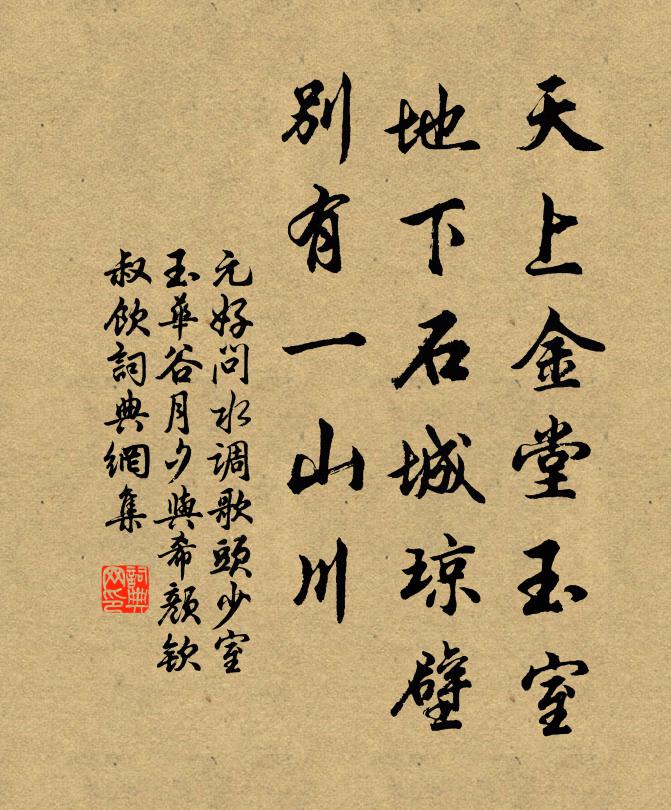 天上金堂玉室
地下石城琼壁
别有一山川
元好问水调歌頭少室
玉華谷月夕與希顏欽
叔飲詞典網集
詞典
网印